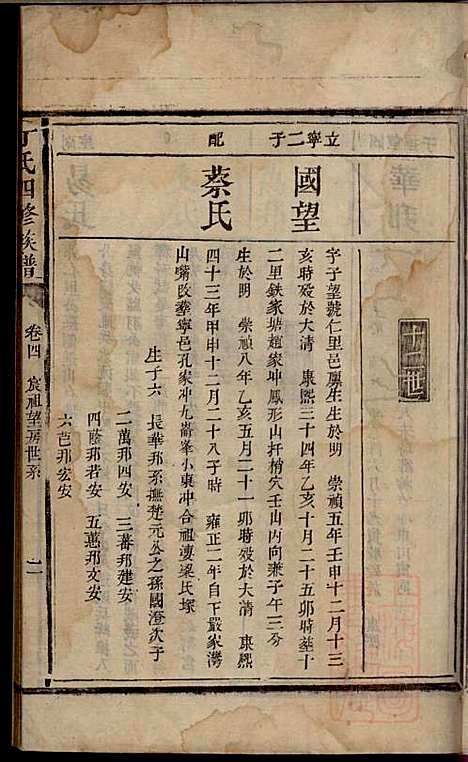 十二世
立寧二子
國望
字子望號仁里邑廩生生於明 崇禎五年壬申十二月十三
亥時歿於大清 康熙三十四年乙亥十月二十五卯時葬十
二里鉄家塘趙家冲鳳形山扦梢穴壬山丙向兼子午三分
配
蔡氏
生於明 崇禎八年乙亥五月二十一卯時歿於大清 康熙
四十三年甲申十二月二十八子時 雍正二年自下嚴家灣
山嘴改葬寧邑孔家冲九崙峯小東冲合祖溇梁氏塚
生子六 長華邦系撫楚元公之孫國澄次子
二萬邦四安 三蕃邦建安
四蔭邦若安 五蕙邦文安
六芭邦宏安
丁氏四修族譜
卷四 宸祖望房世系